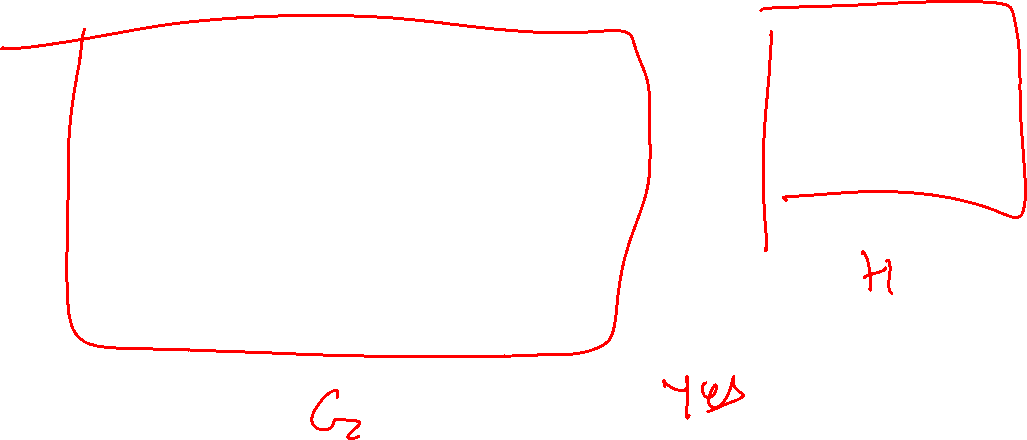 H
G₂ Yes